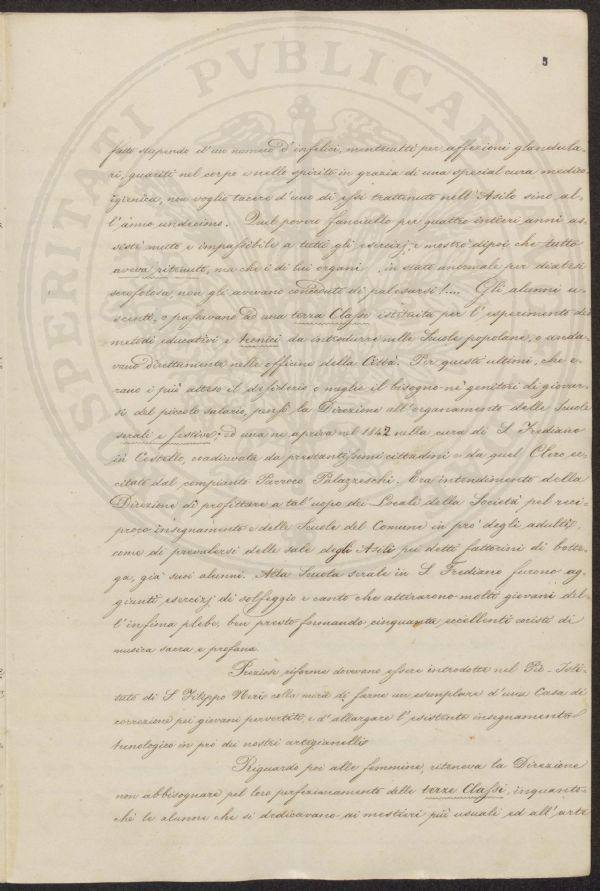 5
fatto stupendo d'un numero d'infelici, mentecatti per affezioni glandula-
ri, guariti nel corpo e nello spirito in grazia di una special cura medico
igienica, non voglio tacere d'uno di essi trattenuto nell'Asilo sino al-
l'anno undecimo. Quel povero fanciullo per quattro intieri anni as-
sistì muto e impassibile a tutti gli esercizj, e mostrò dipoi che tutto
aveva ritenuto, ma che i di lui organi, in stato anormale per diatesi
scrofolosa, non gli avevano conceduto di palesarsi!.... Gli alunni u-
scenti, o passavano ad una terza Classe istituita per l'esperimento dei
metodi educativi e tecnici da introdurre nelle Scuole popolane, o anda-
vano direttamente nelle officine della Città. Per questi ultimi, che e-
rano i più atteso il desiderio o meglio il bisogno ne' genitori di giovar-
si del piccolo salario, pensò la Direzione all'organamento delle Scuole
serali e festive; ed una ne apriva nel 1842 nella cura di S. Frediano
in Cestello, coadiuvata da prestantissimi cittadini e da quel Clero ec-
citato dal compianto Parroco Palazzeschi. Era intendimento della
Direzione di profittare a tal'uopo dei Locali della Società pel reci-
proco insegnamento e delle Scuole del Comune in prò degli adulti,
come di prevalersi delle sale degli Asili pei detti fattorini di botte-
ga, già suoi alunni. Alla Scuola serale in S. Frediano furono ag-
giunti esercizj di solfeggio e canto che attirarono molti giovani del-
l'infima plebe, ben presto formando cinquanta eccellenti coristi di
musica sacra e profana.
Preziose riforme dovevano essere introdotte nel Pio-Isti-
tuto di S. Filippo Neri colla mira di farne un esemplare d'una Casa di
correzione pei giovani pervertiti, e d'allargare l'esistente insegnamento
tecnologico in prò dei nostri artigianelli.
Riguardo poi alle femmine, riteneva la Direzione
non abbisognare pel loro perfezionamento delle terze Classi, inquanto-
chè le alunne che si dedicavano ai mestieri più usuali ed all'arte
OSPERITATI PVBLICAE